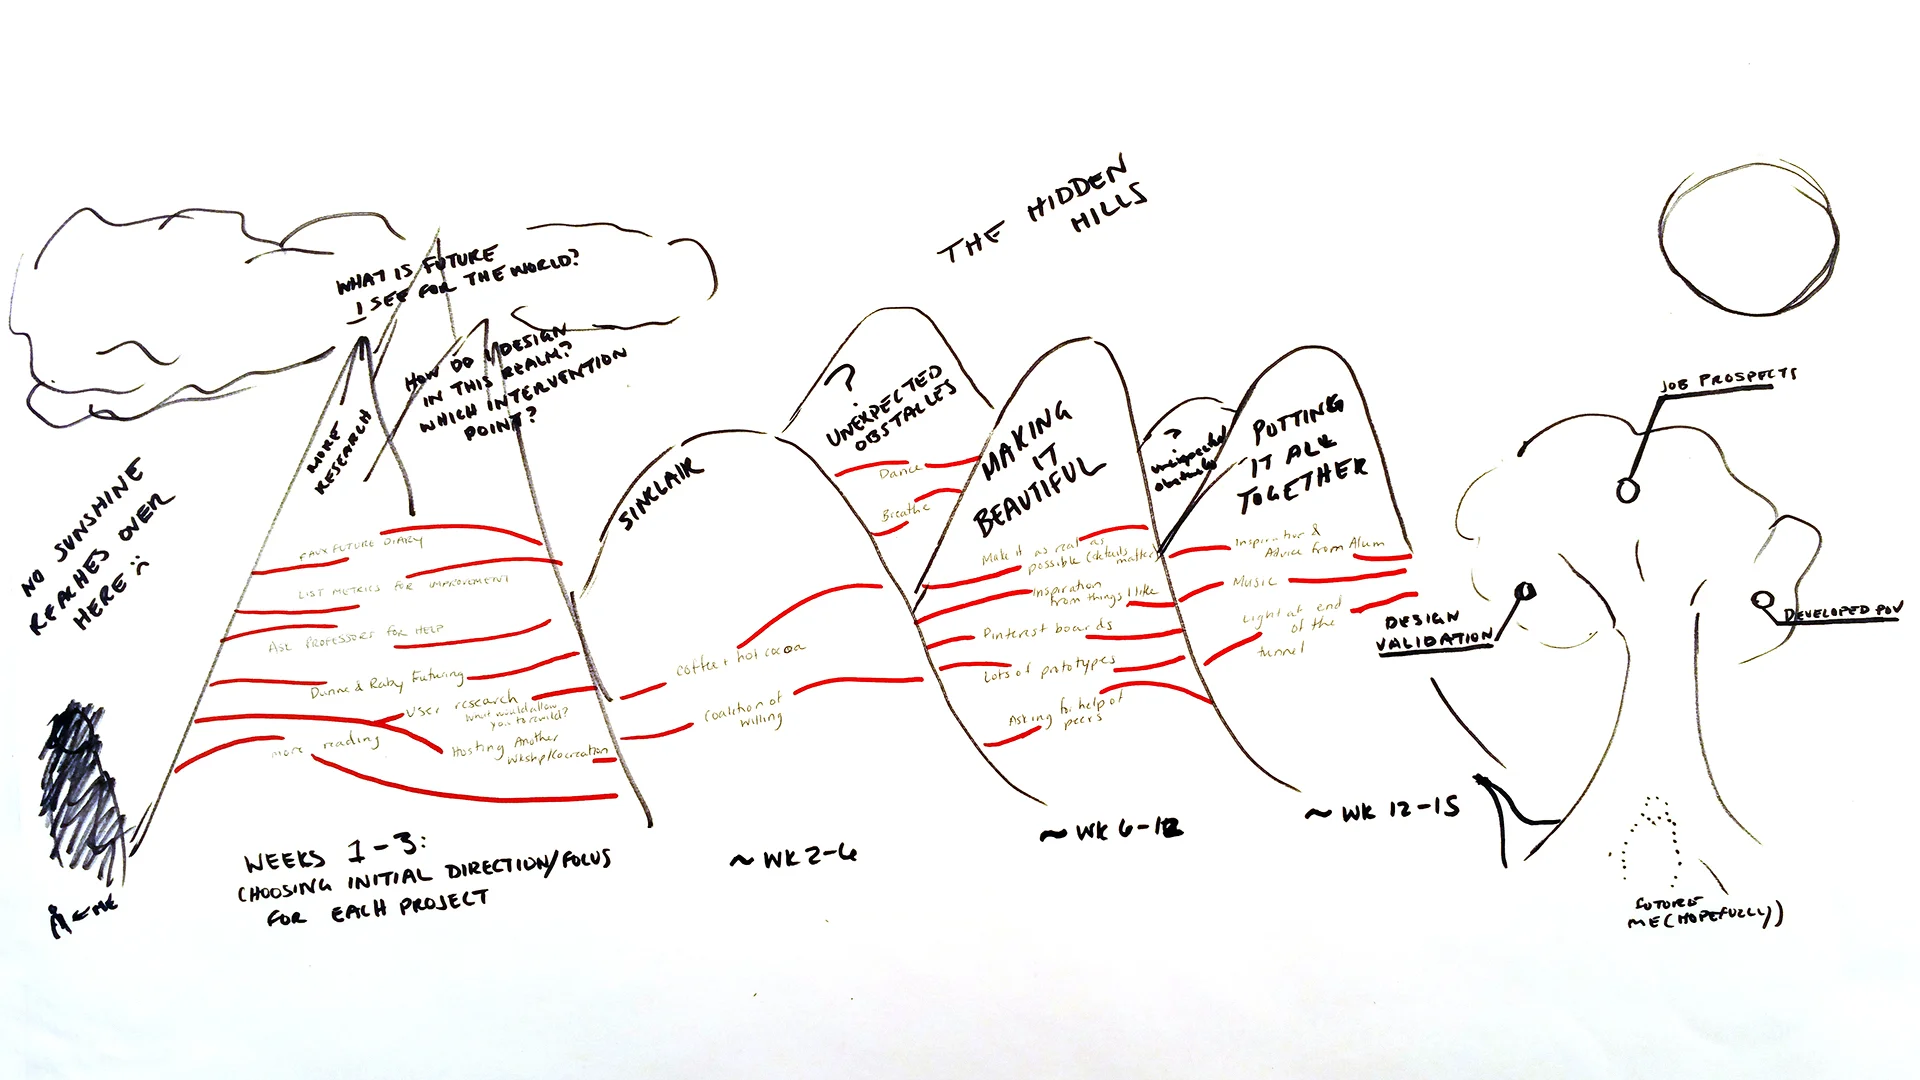 THE HIDDEN
HILLS
WHAT IS FUTURE
I SEE FOR THE WORLD?
HOW DO I DESIGN
IN THIS REALM?
WHICH INTERVENTION
POINT?
MORE
RESEARCH
NO SUNSHINE
REACHES OVER
HERE :(
FAUX FUTURE DIARY
LIST METRICS FOR IMPROVEMENT
ASK PROFESSORS FOR HELP
Dunne & Raby Futuring
User research
what would allow
you to rewild?
Hosting Another
Wkshp/Cocreation
more reading
← ME
WEEKS 1-3:
CHOOSING INITIAL DIRECTION/FOCUS
FOR EACH PROJECT
SINCLAIR
coffee + hot cocoa
Coalition of
willing
~ WK 2-6
?
UNEXPECTED
OBSTACLES
Dance
Breathe
MAKING
IT
BEAUTIFUL
Make it as real as
possible (details matter)
Inspiration
from things I like
Pinterest boards
Lots of prototypes
Asking for help of
peers
~ WK 6-12
?
unexpected
obstacles
PUTTING
IT ALL
TOGETHER
Inspiration &
Advice from Alum
Music
Light at end
of the
tunnel
~ WK 12-15
JOB PROSPECTS
DESIGN
VALIDATION
DEVELOPED POV
FUTURE
ME (HOPEFULLY)